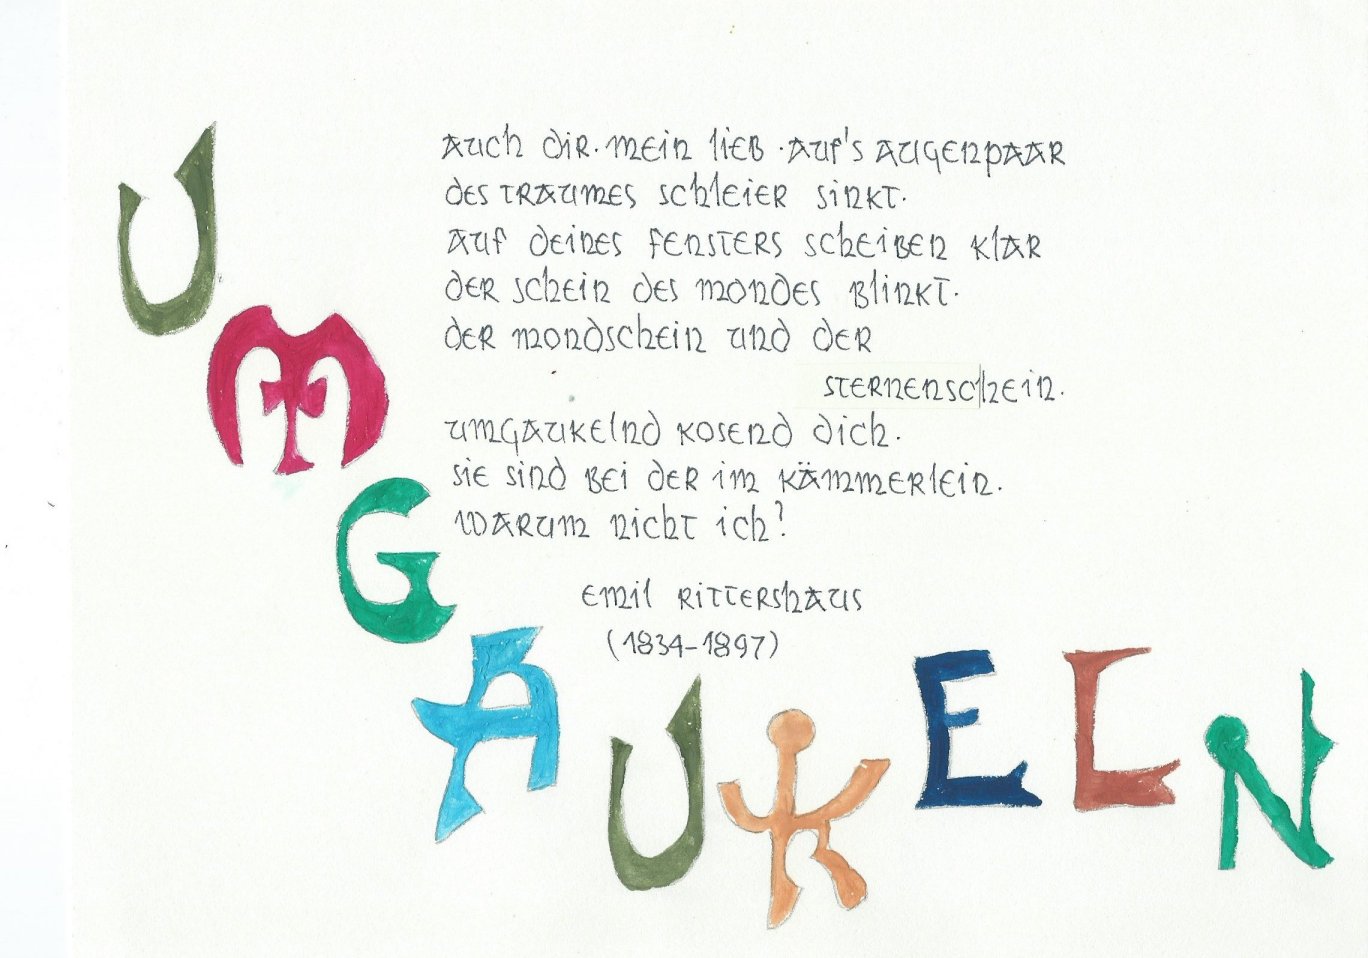 Auch dir. mein Lieb. Auf's Augenpaar
des Traumes Schleier sinkt.
Auf deines Fensters Scheiben klar
der Schein des Mondes blinkt.
Der Mondschein und der
Sternenschein.
umgaukelnd kosend dich.
Sie sind bei der im Kämmerlein.
Warum nicht ich?
Emil Rittershaus
(1834-1897)
UMGAUKELN